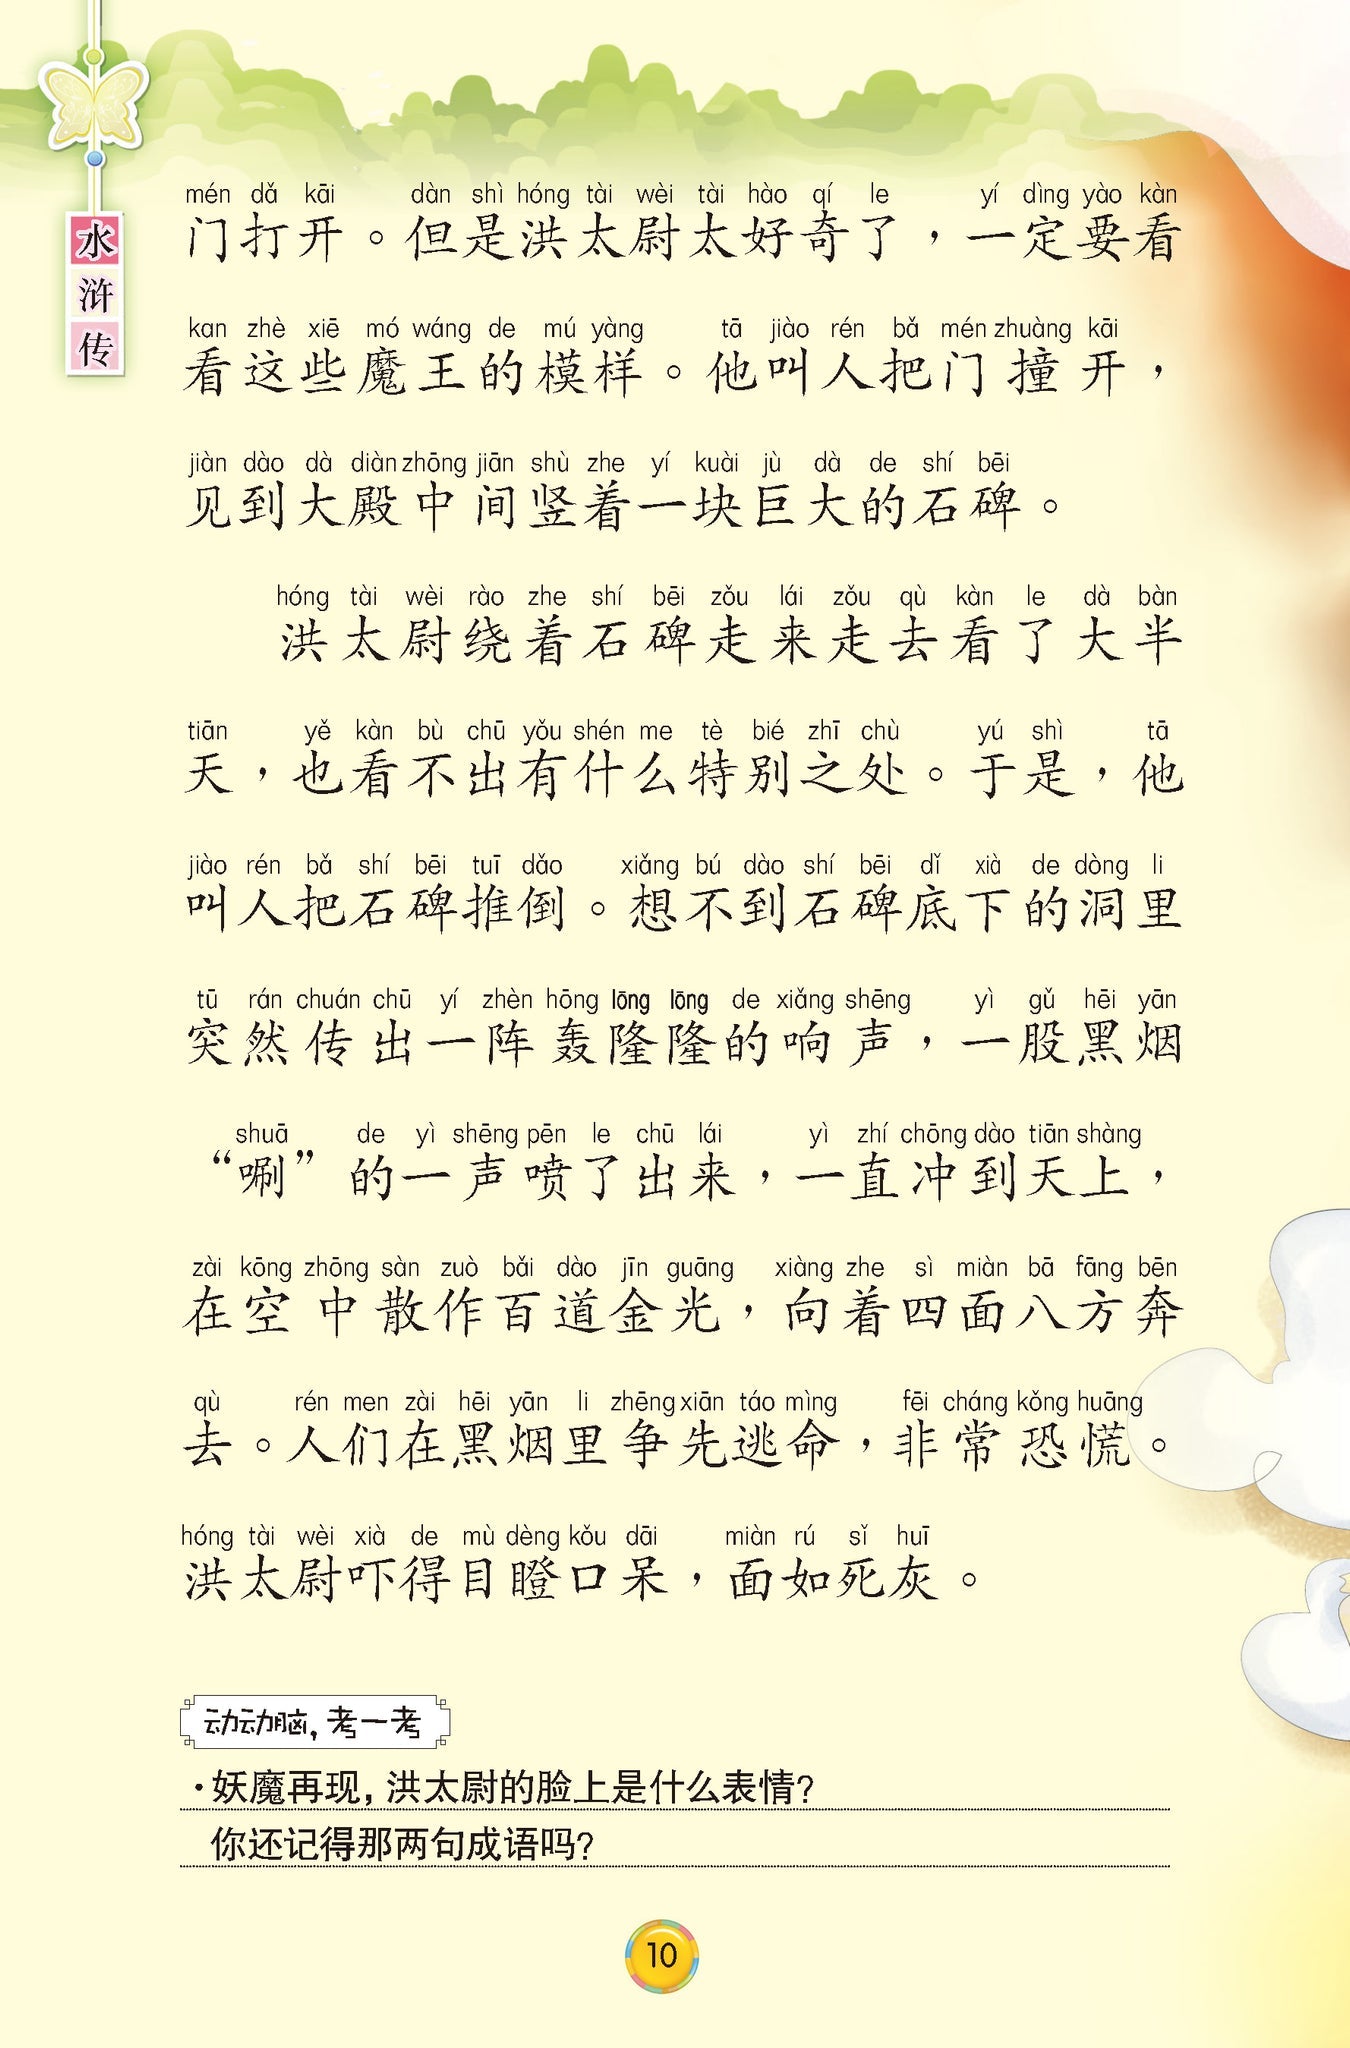 水浒传
mén dǎ kāi dàn shì hóng tài wèi tài hào qí le yí dìng yào kàn
门打开。但是洪太尉太好奇了，一定要看
kan zhè xiē mó wáng de mú yàng tā jiào rén bǎ mén zhuàng kāi
看这些魔王的模样。他叫人把门撞开，
jiàn dào dà diàn zhōng jiān shù zhe yí kuài jù dà de shí bēi
见到大殿中间竖着一块巨大的石碑。
hóng tài wèi rào zhe shí bēi zǒu lái zǒu qù kàn le dà bàn
洪太尉绕着石碑走来走去看了大半
tiān yě kàn bù chū yǒu shén me tè bié zhī chù yú shì tā
天，也看不出有什么特别之处。于是，他
jiào rén bǎ shí bēi tuī dǎo xiǎng bú dào shí bēi dǐ xià de dòng li
叫人把石碑推倒。想不到石碑底下的洞里
tū rán chuán chū yí zhèn hōng lōng lōng de xiǎng shēng yì gǔ hēi yān
突然传出一阵轰隆隆的响声，一股黑烟
shuā de yì shēng pēn le chū lái yì zhí chōng dào tiān shàng
“唰”的一声喷了出来，一直冲到天上，
zài kōng zhōng sàn zuò bǎi dào jīn guāng xiàng zhe sì miàn bā fāng bēn
在空中散作百道金光，向着四面八方奔
qù rén men zài hēi yān li zhēng xiān táo mìng fēi cháng kǒng huāng
去。人们在黑烟里争先逃命，非常恐慌。
hóng tài wèi xià de mù dèng kǒu dāi miàn rú sǐ huī
洪太尉吓得目瞪口呆，面如死灰。
动动脑，考一考
·妖魔再现，洪太尉的脸上是什么表情？
你还记得那两句成语吗？
10